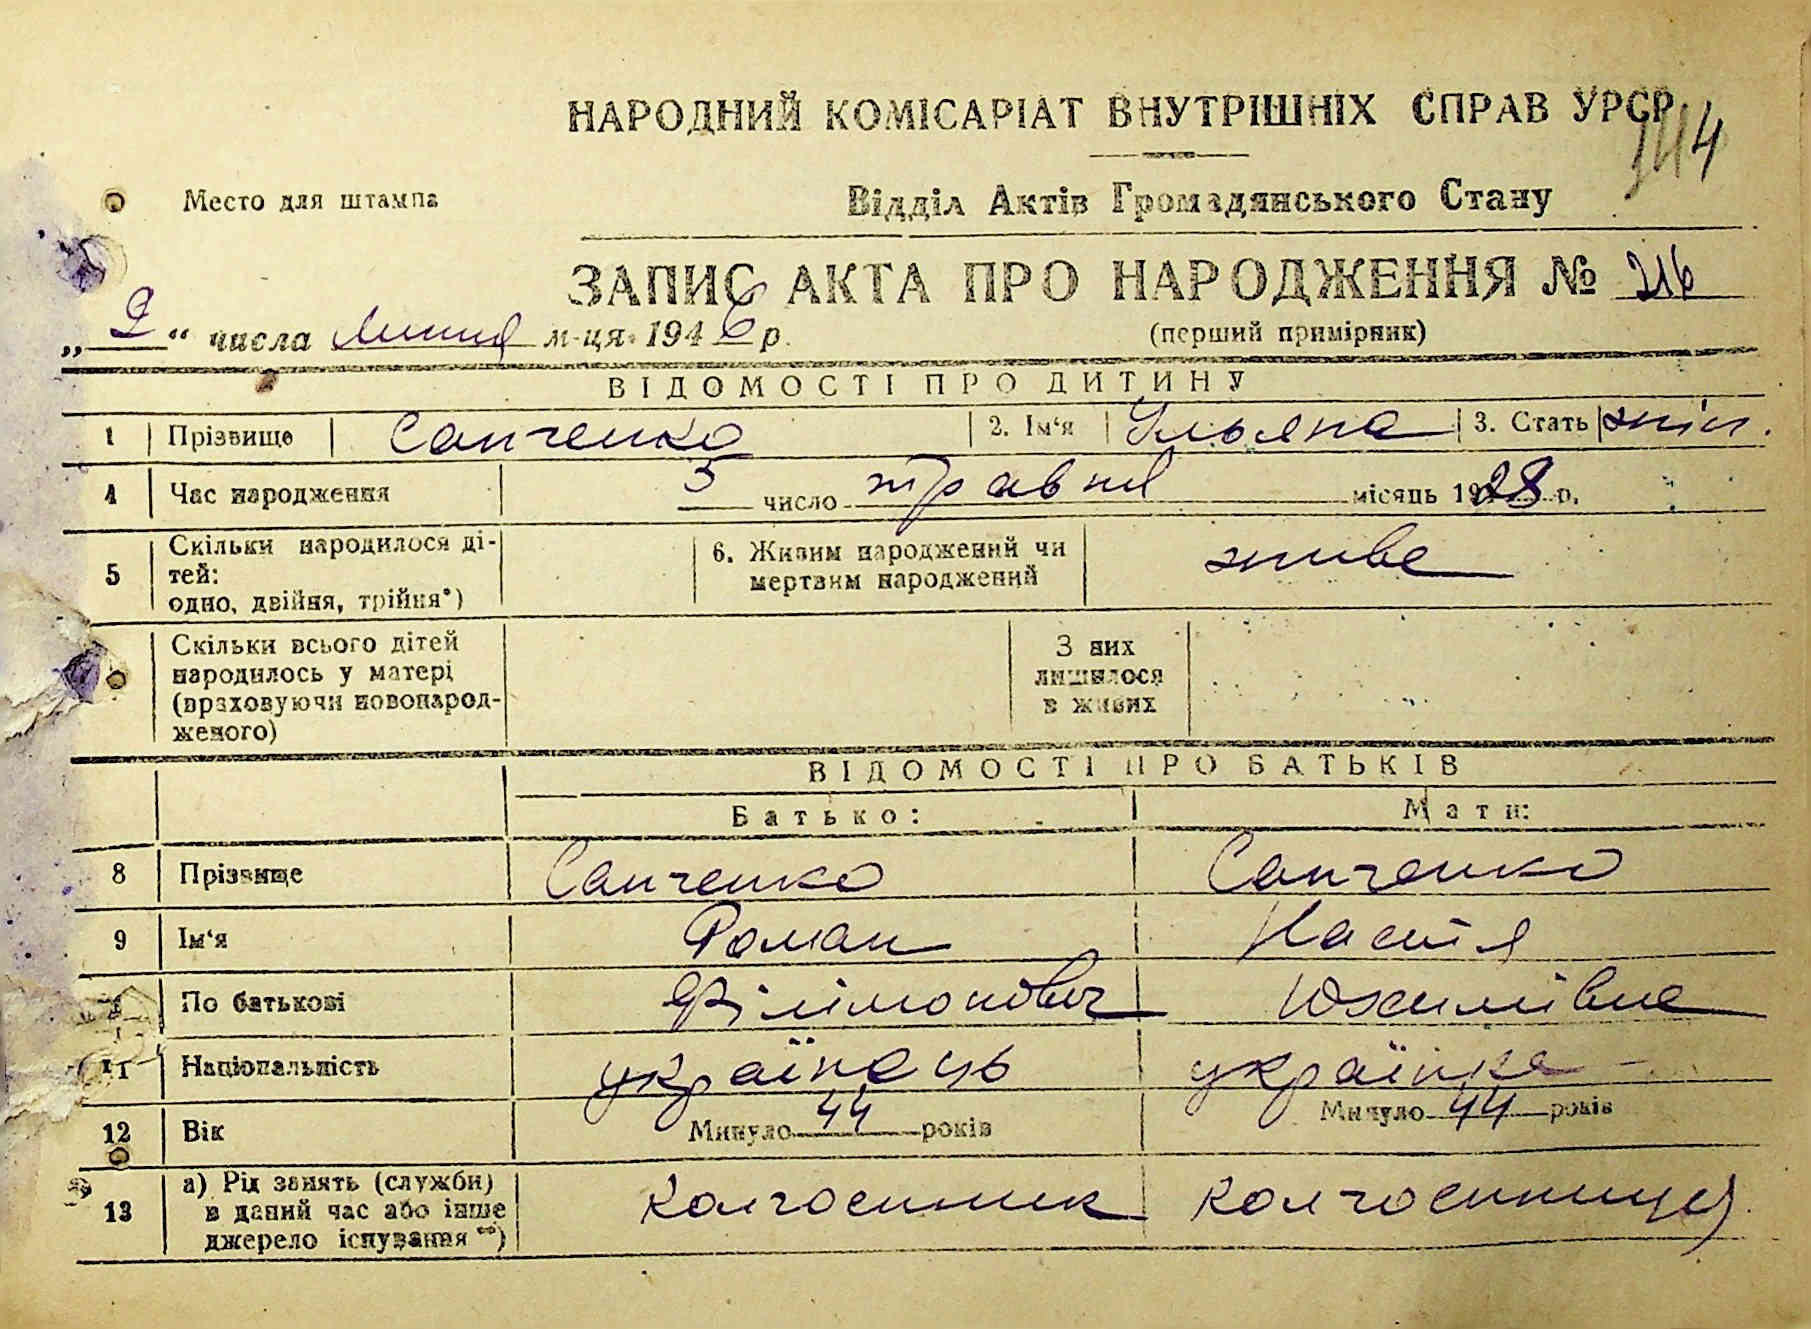 НАРОДНИЙ КОМІСАРІАТ ВНУТРІШНІХ СПРАВ УРСР
144
Место для штампа
Відділ Актів Громадянського Стану
ЗАПИС АКТА ПРО НАРОДЖЕННЯ № 216
„ 2 “ числа липня м-ця 1946 р.
(перший примірник)
ВІДОМОСТІ ПРО ДИТИНУ
1 Прізвище Сапченко 2. Ім‘я Ульяна 3. Стать жін.
4 Час народження 5 число травня місяць 1928 р.
5 Скільки народилося ді-
тей:
одно, двійня, трійня*)
6. Живим народжений чи
мертвим народжений
живе
Скільки всього дітей
народилось у матері
(враховуючи новонарод-
женого)
З них
лишилося
в живих
ВІДОМОСТІ ПРО БАТЬКІВ
Батько: Мати:
8 Прізвище Сапченко Сапченко
9 Ім‘я Роман Настя
По батькові Філімонович Юхимівна
11 Національність українець українка
12 Вік Минуло 44 років Минуло 44 років
13 а) Рід занять (служби)
в даний час або інше
джерело існування **)
Колгоспник Колгоспниця